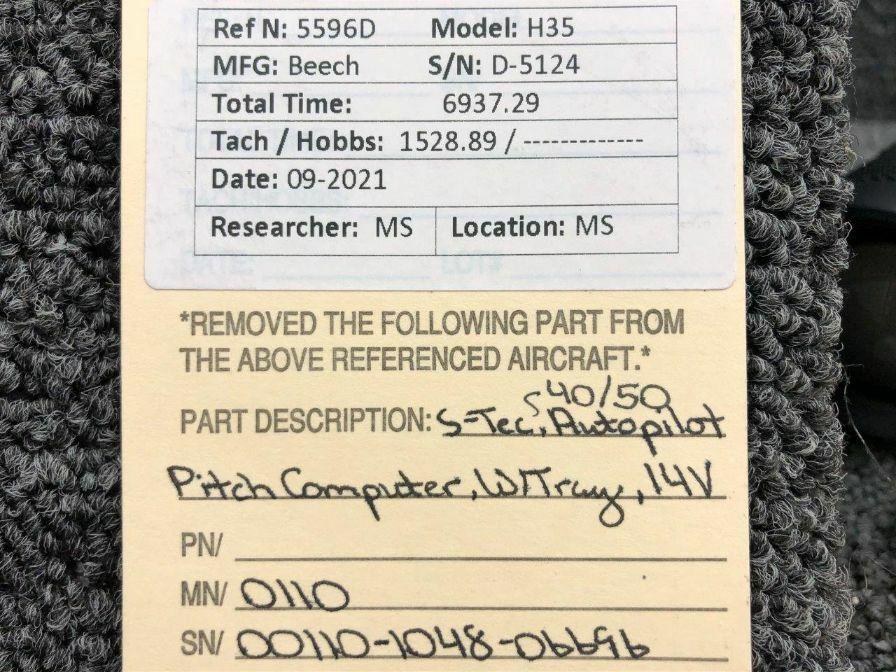 Ref N: 5596D Model: H35
MFG: Beech S/N: D-5124
Total Time: 6937.29
Tach / Hobbs: 1528.89 / -------------
Date: 09-2021
Researcher: MS Location: MS
DATE: LOT#
*REMOVED THE FOLLOWING PART FROM
THE ABOVE REFERENCED AIRCRAFT.*
S40/50
PART DESCRIPTION: S-Tec, Autopilot
Pitch Computer, W/Tray, 14V
PN/
MN/ 0110
SN/ 00110-1048-0669b